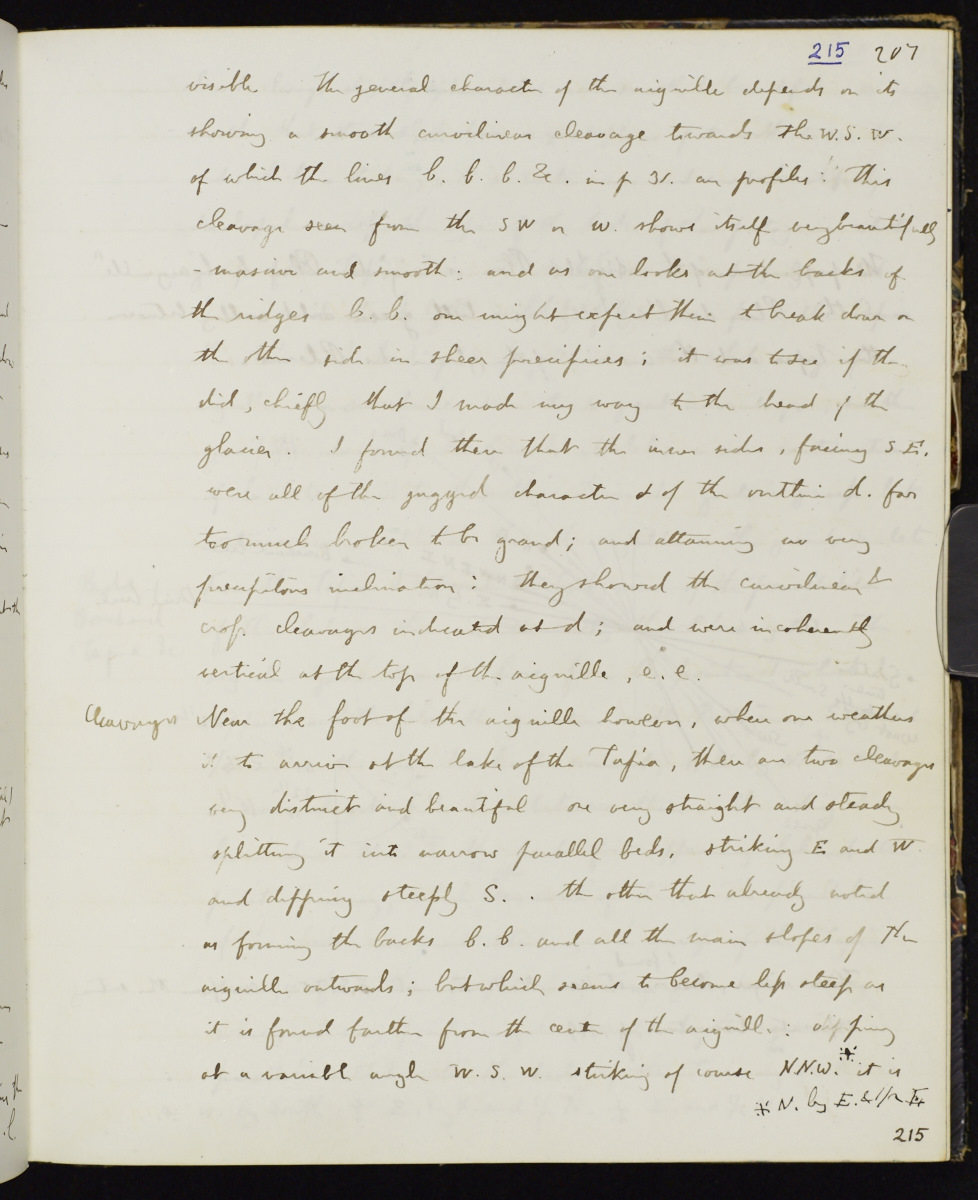 215 207
visible The general character of the aiguille depends on its
showing a smooth curvilinear cleavage towards the W. S. W.
of which the lines b. b. b. &c. in p are profiles: This
cleavage seen from the SW or W. shows itself very beautifully
- massive and smooth: and as one looks at the backs of
the ridges b. b. one might expect them to break down on
the other side in sheer precipices; it was to see if they
did, chiefly that I made my way to the head of the
glacier. I found there that the inner sides, facing S E.
were all of the character & of the outline d. far
too much broken to be grand; and attaining no very
precipitous inclination: they showed the curvilinear &
crop. cleavages indicated at d; and were incoherently
vertical at the top of the aiguille, e. e.
Cleavages Near the foot of the aiguille however, when one weathers
it to arrive at the lake of the Tapia, there are two cleavages
very distinct and beautiful one very straight and steady
splitting it into narrow parallel beds, striking E and W
and dipping steeply S. . the other that already noted
as forming the backs b. b. and all the main slopes of the
aiguille outwards; but which seems to become less steep as
it is found farther from the centre of the aiguille: dipping
at a variable angle W. S. W. striking of course N.N.W. it is
N. by E.
215